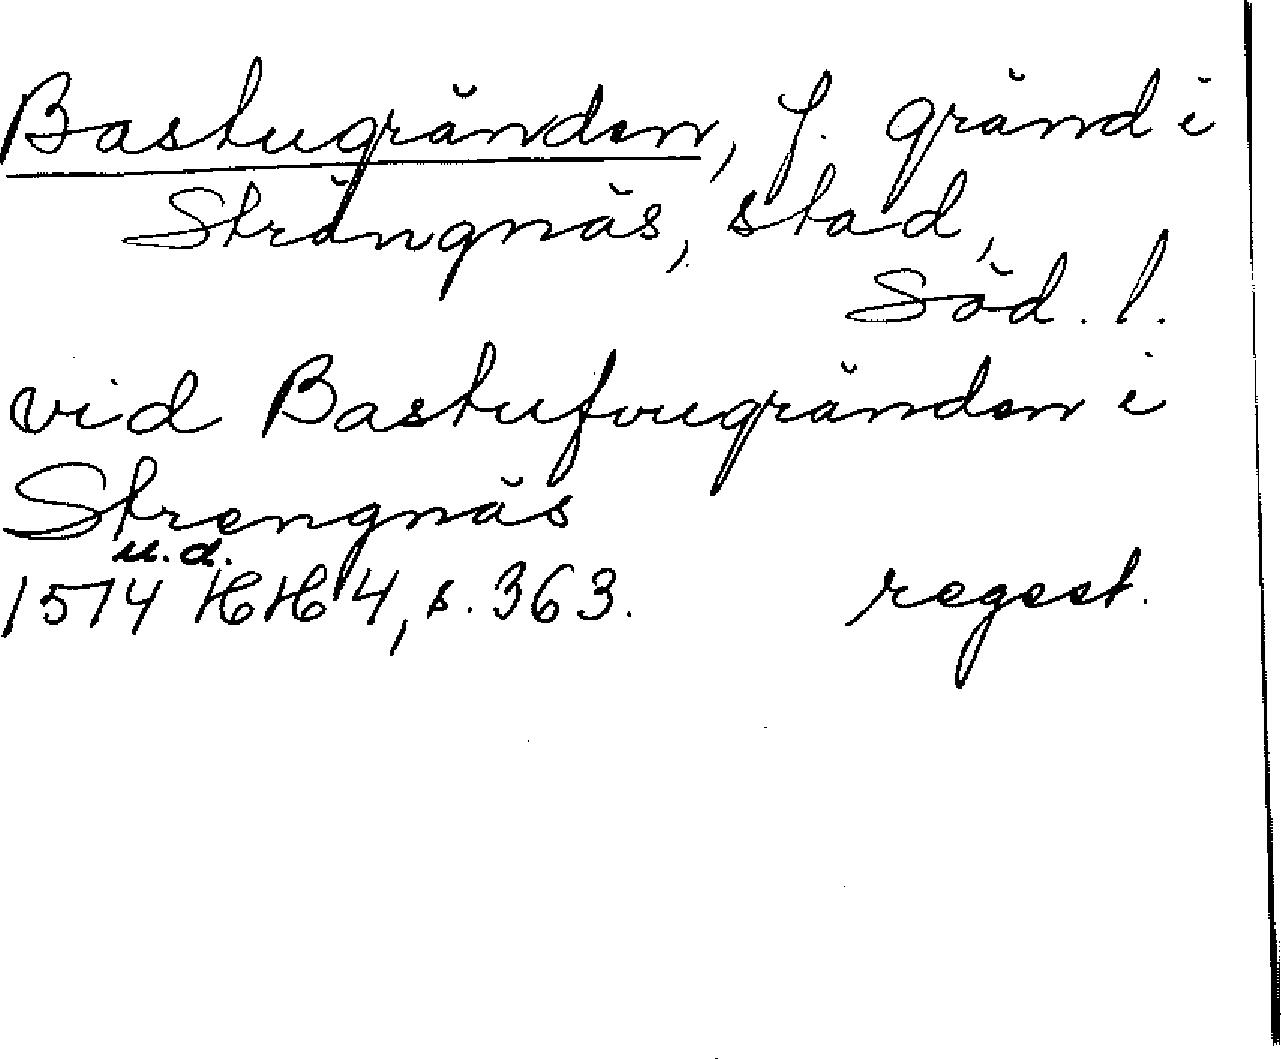 Bastugränden, f. gränd i
Strängnäs, stad,
Söd. l.
vid Bastufvugränden i
Strengnäs
u.d.
1574 HH 4, s. 363. regest.